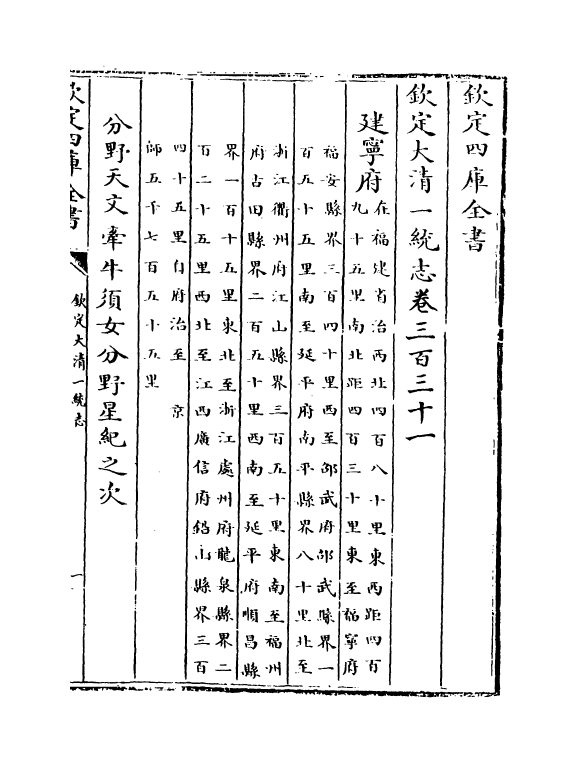 欽定四庫全書
欽定大清一統志卷三百三十一
建寧府
在福建省治西北四百八十里東西距四百
九十五里南北距四百三十里東至福寧府
福安縣界三百四十里西至邵武府邵武縣界一
百五十五里南至延平府南平縣界八十里北至
浙江衢州府江山縣界三百五十里東南至福州
府古田縣界二百五十里西南至延平府順昌縣
界一百十五里東北至浙江處州府龍泉縣界二
百二十五里西北至江西廣信府鉛山縣界三百
四十五里自府治至　京
師五千七百五十五里
分野天文牽牛須女分野星紀之次
欽定四庫全書
欽定大清一統志
一